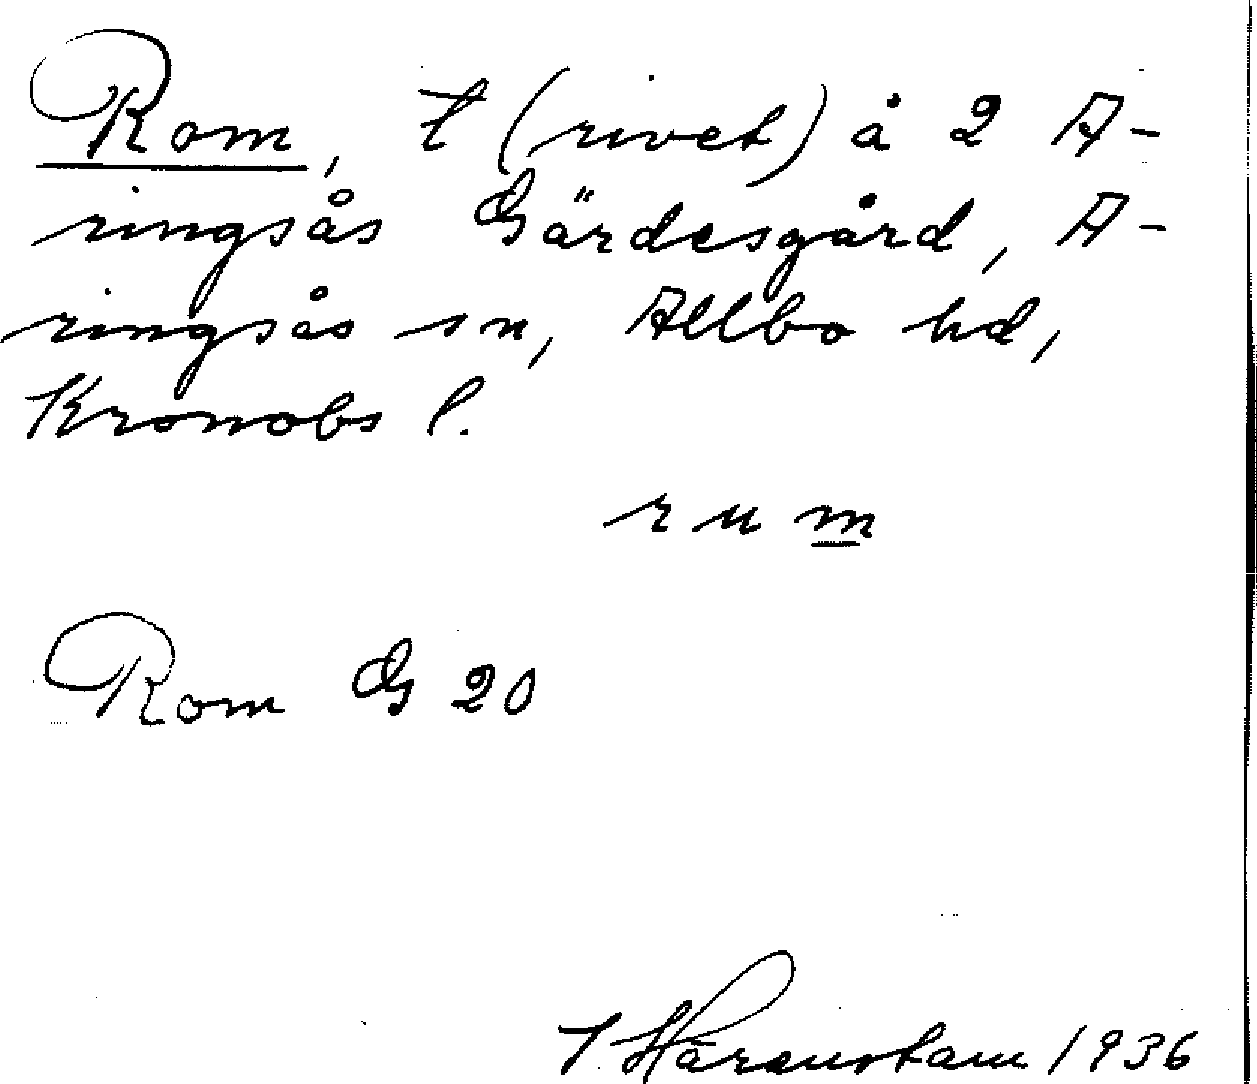 Rom, t (rivet) å 2 A-
ringsås Gärdesgård, A-
ringsås sn, Allbo hd,
Kronobs l.
rum
Rom G 20
Härenstam 1936